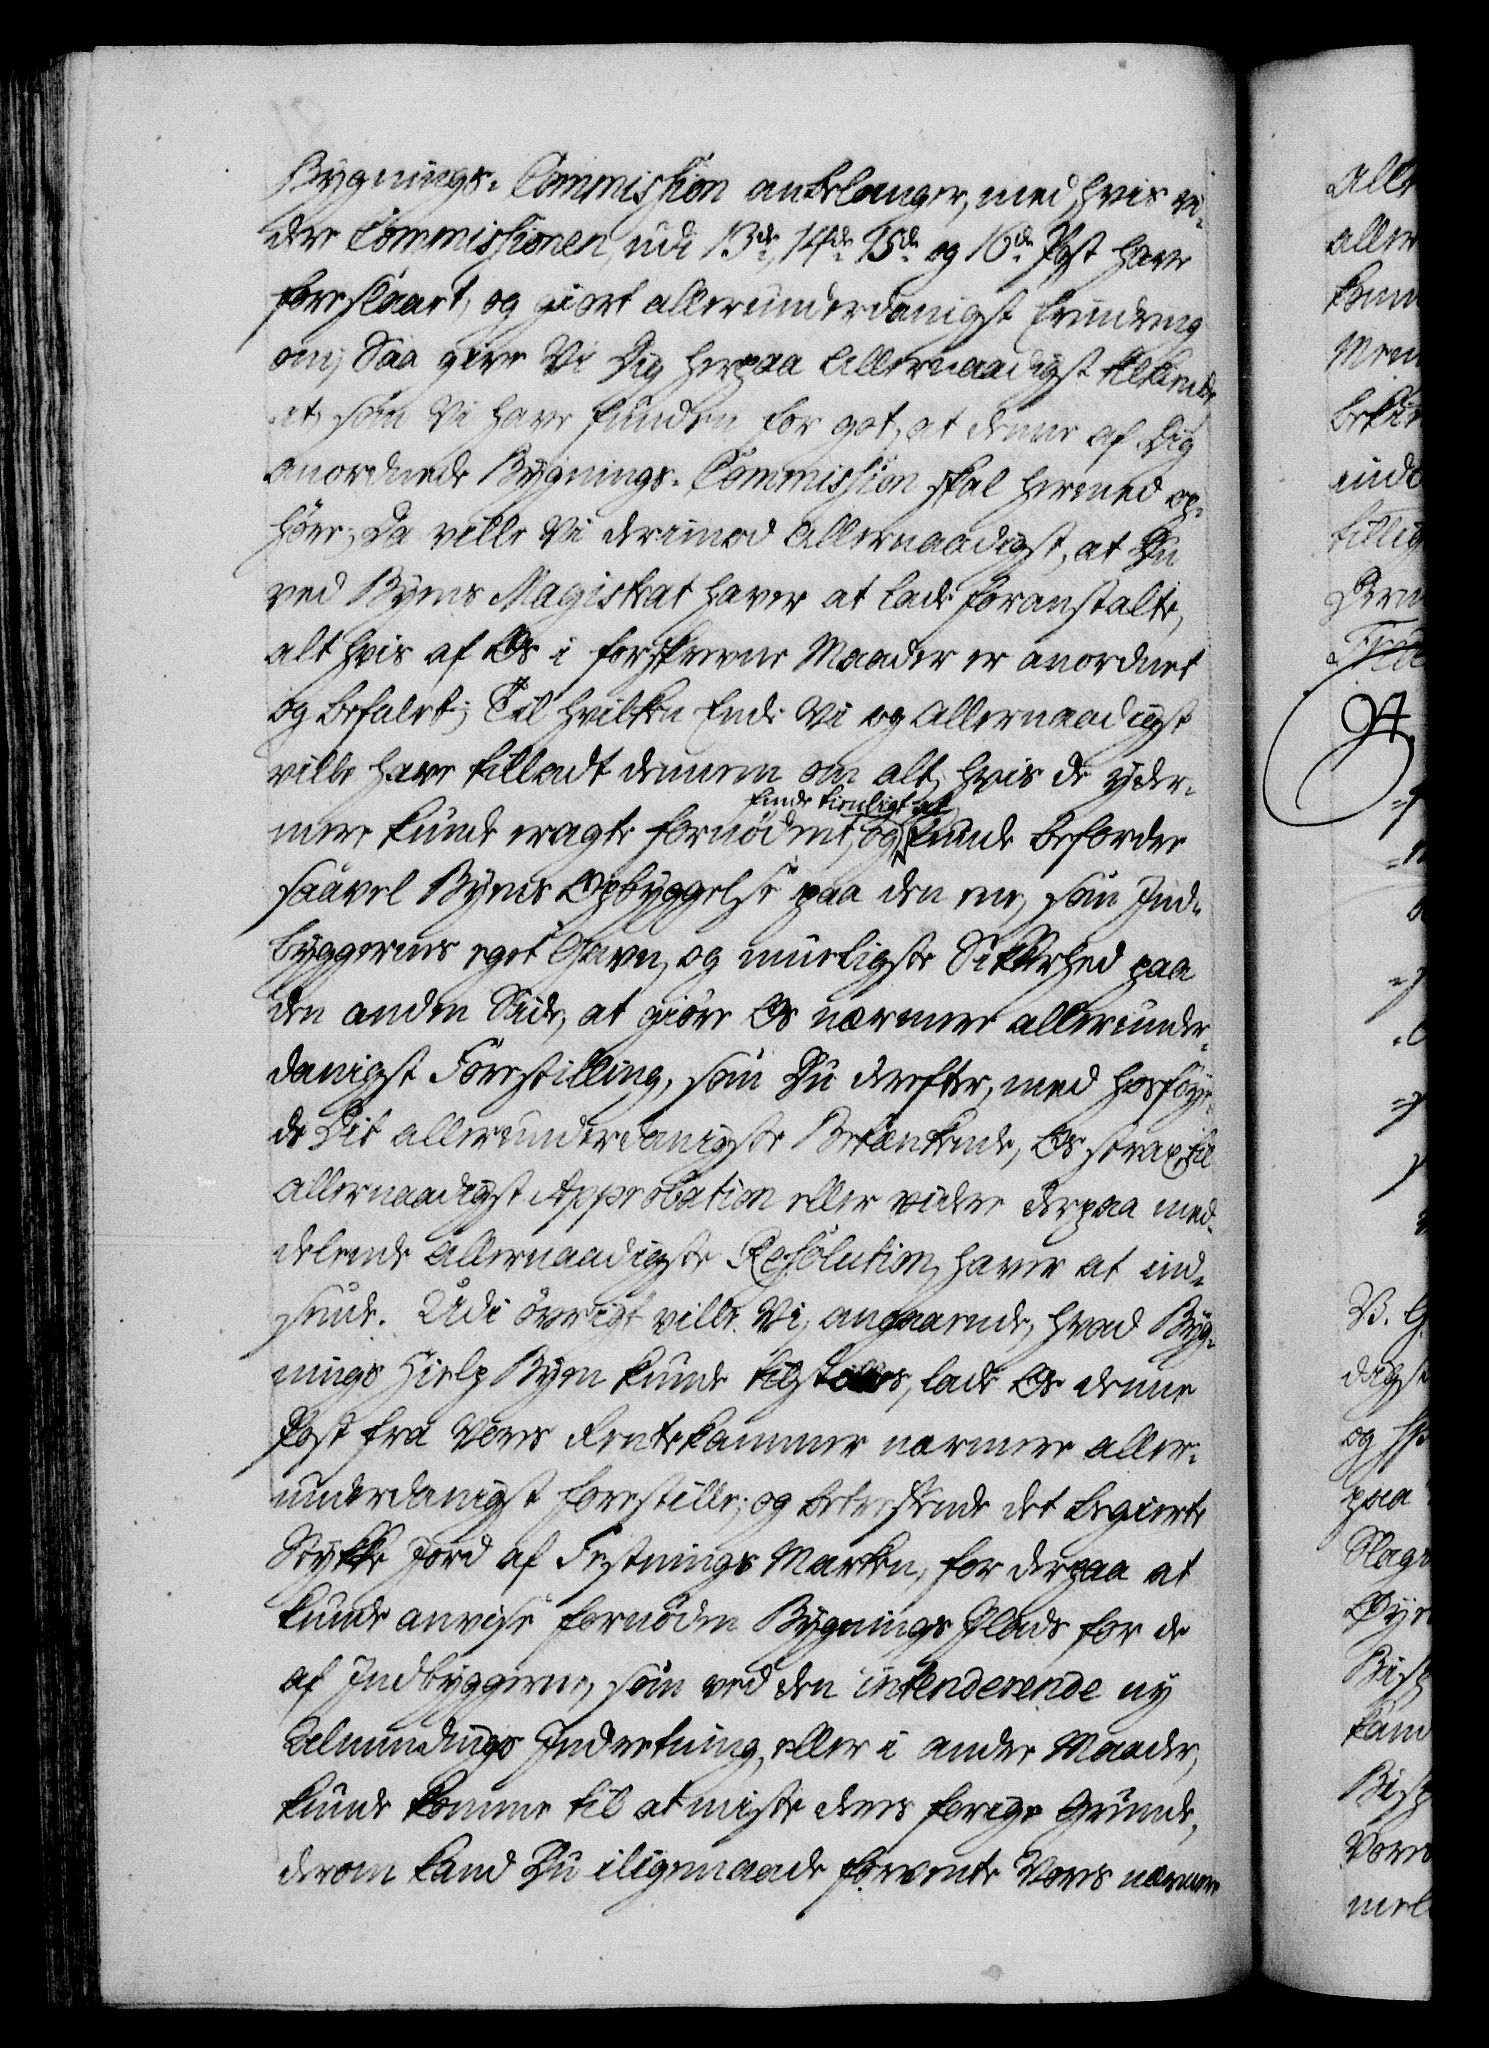 Bygnings-Commission anbelanger, med hvis vi-
dere Commissionen, udi 13de, 14de 15de og 16de Post have
foreslaaet, og giort allerunderdanigst Erindring
om; Saa give Vi Dig herpaa Allernaadigst tilkiende,
at, som Vi have funden for got, at denne af Dig
anordnede Bygnings-Commission skal hermed op-
høre; Da ville Vi derimod Allernaadigst, at Du
ved Byens Magistrat haver at lade foranstalte,
alt hvis af Os i forskrevne Maader er anordnet
og befalet; Til hvilken Ende Vi og Allernaadigst
ville have tilladt dennem om alt, hvis de yder-
finde tienligt at
mere kunde eragte fornødent, og kunde befordre
saavel Byens Opbyggelse paa den ene, som Ind-
byggernes eget Gavn, og mueligste Sikkerhed paa
den anden Side, at giøre Os nærmere allerunder-
danigst Forestilling, som Du derefter, med hosføye-
de Dit allerunderdanigste Betænkende, Os strax til
Allernaadigst Approbation eller videre derpaa med-
delende Allernaadigste Resolution, haver at ind-
sende. Udi øvrigt ville Vi, angaaende, hvad Byg-
nings Hielp Byen kunde tilstilles, lade Os denne
Post fra Vores Rentekammer nærmere aller-
underdanigst forestille; og betreffende det begierte
Stykke Jord af Festnings Marken, for derpaa at
kunde anvise fornøden Bygnings Plads for de
af Indbyggerne, som ved den intenderende ny
Almindings Indretning, eller i andre Maader,
kunde komme til at miste deres forige Grunde,
derom kand Du iligemaade forvente Vores nærmere